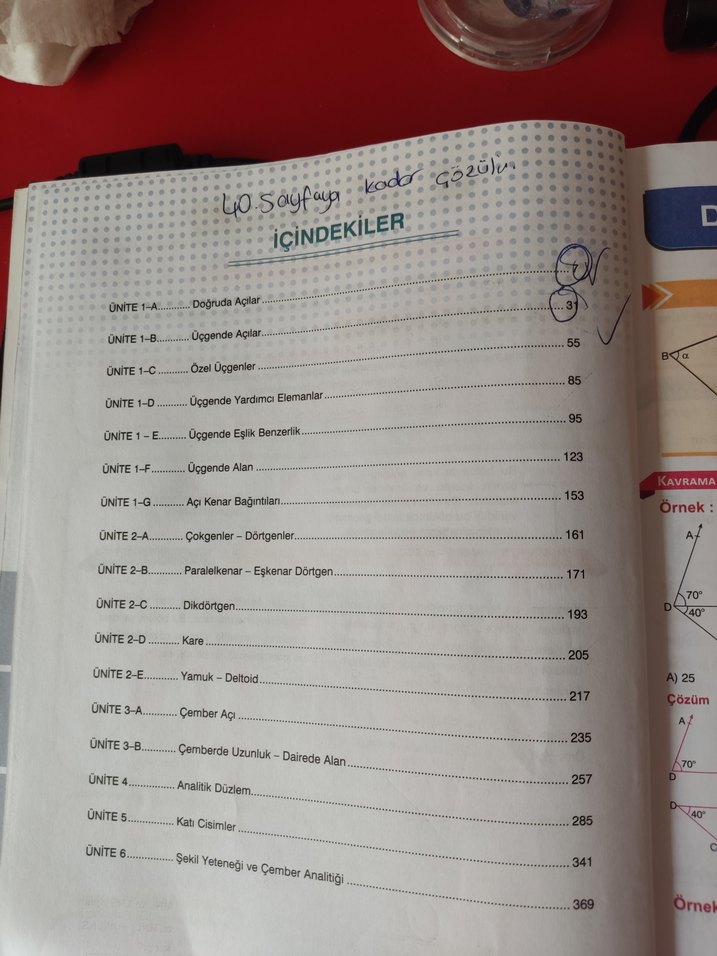 40. Sayfaya kadar çözülü.
İÇİNDEKİLER
ÜNİTE 1–A........... Doğruda Açılar
ÜNİTE 1–B........... Üçgende Açılar 31
ÜNİTE 1–C .......... Özel Üçgenler 55
ÜNİTE 1–D .......... Üçgende Yardımcı Elemanlar 85
ÜNİTE 1 – E......... Üçgende Eşlik Benzerlik 95
ÜNİTE 1–F........... Üçgende Alan 123
ÜNİTE 1–G .......... Açı Kenar Bağıntıları 153
ÜNİTE 2–A........... Çokgenler – Dörtgenler 161
ÜNİTE 2–B........... Paralelkenar – Eşkenar Dörtgen 171
ÜNİTE 2–C .......... Dikdörtgen 193
ÜNİTE 2–D .......... Kare 205
ÜNİTE 2–E........... Yamuk – Deltoid 217
ÜNİTE 3–A........... Çember Açı 235
ÜNİTE 3–B........... Çemberde Uzunluk – Dairede Alan 257
ÜNİTE 4 .............. Analitik Düzlem 285
ÜNİTE 5............... Katı Cisimler 341
ÜNİTE 6............... Şekil Yeteneği ve Çember Analitiği 369
D
B α
KAVRAMA
Örnek :
A
70°
D 40°
A) 25
Çözüm
A
70°
D
D 40°
C
Örnek